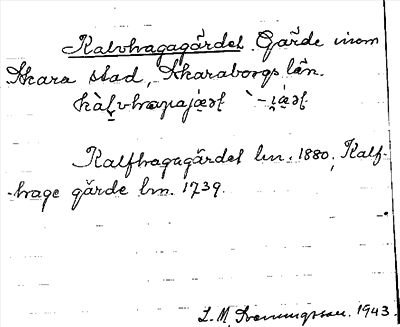 Kalvhagagärdet. Gärde inom
Skara stad, Skaraborgs län.
Kalfhagagärdet lm. 1880, Kalf-
-hage gärde lm. 1739.
L. M. Svenungsson. 1943.